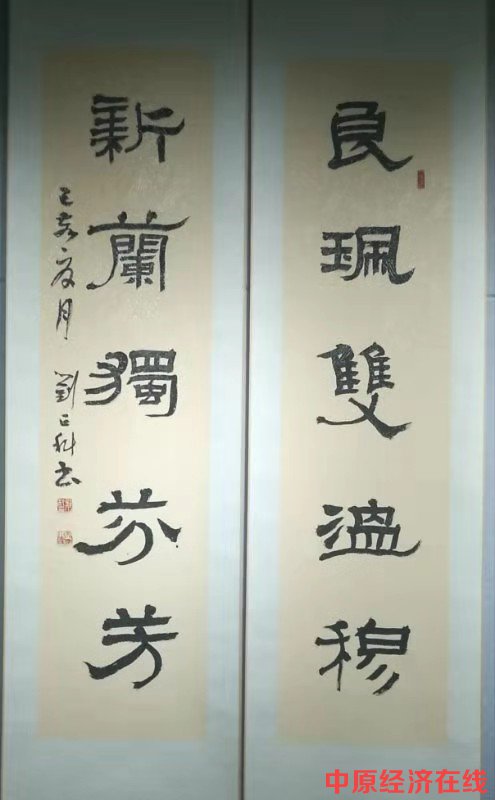 良珮雙溫穆
新蘭獨芬芳
己亥夏月
劉正科书
中原经济在线